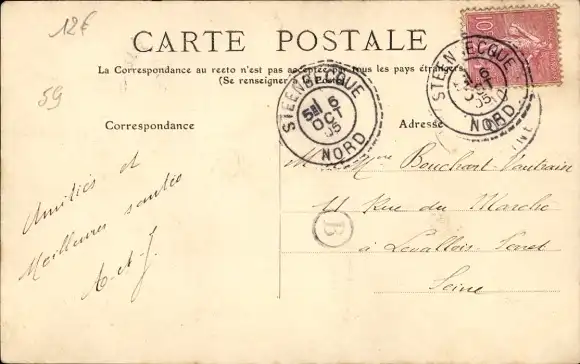 12€
59
CARTE POSTALE
La Correspondance au recto n'est pas acceptée par tous les pays étrangers
(Se renseigner à la Poste)
STEENBECQUE
5E 6
OCT
05
NORD
STEENBECQUE
6
OCT
05
NORD
10
Correspondance
Adresse
Amitiés et
Meilleures santée
A-et-J.
M Mme Bouchart-Vautrain
11 Rue du Marché
à Levallois-Perret
Seine
B